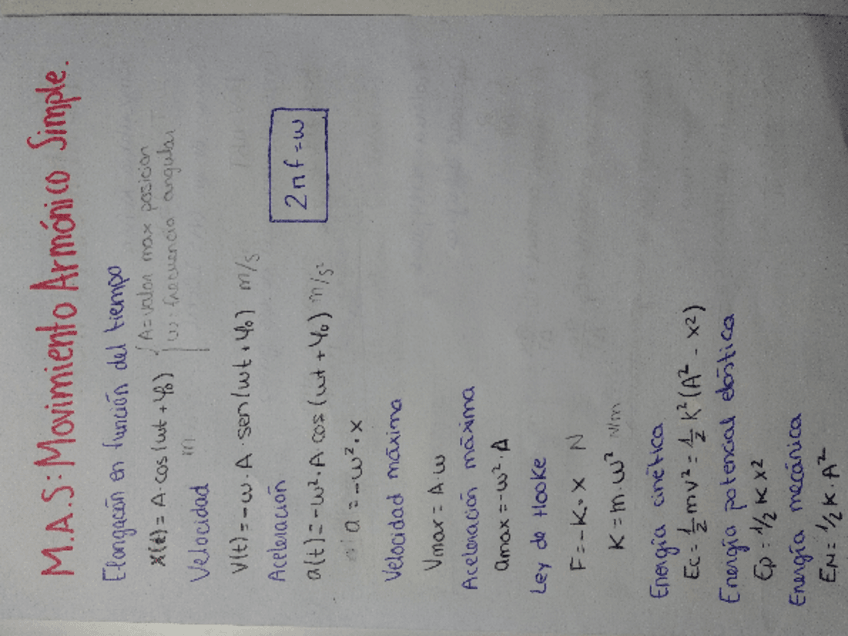 M.A.S: Movimiento Armónico Simple.
Elongación en función del tiempo
x(t) = A·cos(ωt + φ₀) { A = valor max posicion
m ω = frecuencia angular
Velocidad
V(t) = -ω·A·sen(ωt + φ₀) m/s
Aceleración
a(t) = -ω²·A cos(ωt + φ₀) m/s²
2πf = ω
a = -ω²·x
Velocidad máxima
Vmax = A·ω
Aceleración máxima
amax = -ω²·A
Ley de Hooke
F = -K·x N
K = m·ω² N/m
Energía cinética
Ec = ½mv² = ½k²(A² - x²)
Energía potencial elástica
Ep = ½ K x²
Energía mecánica
EM = ½ K·A²